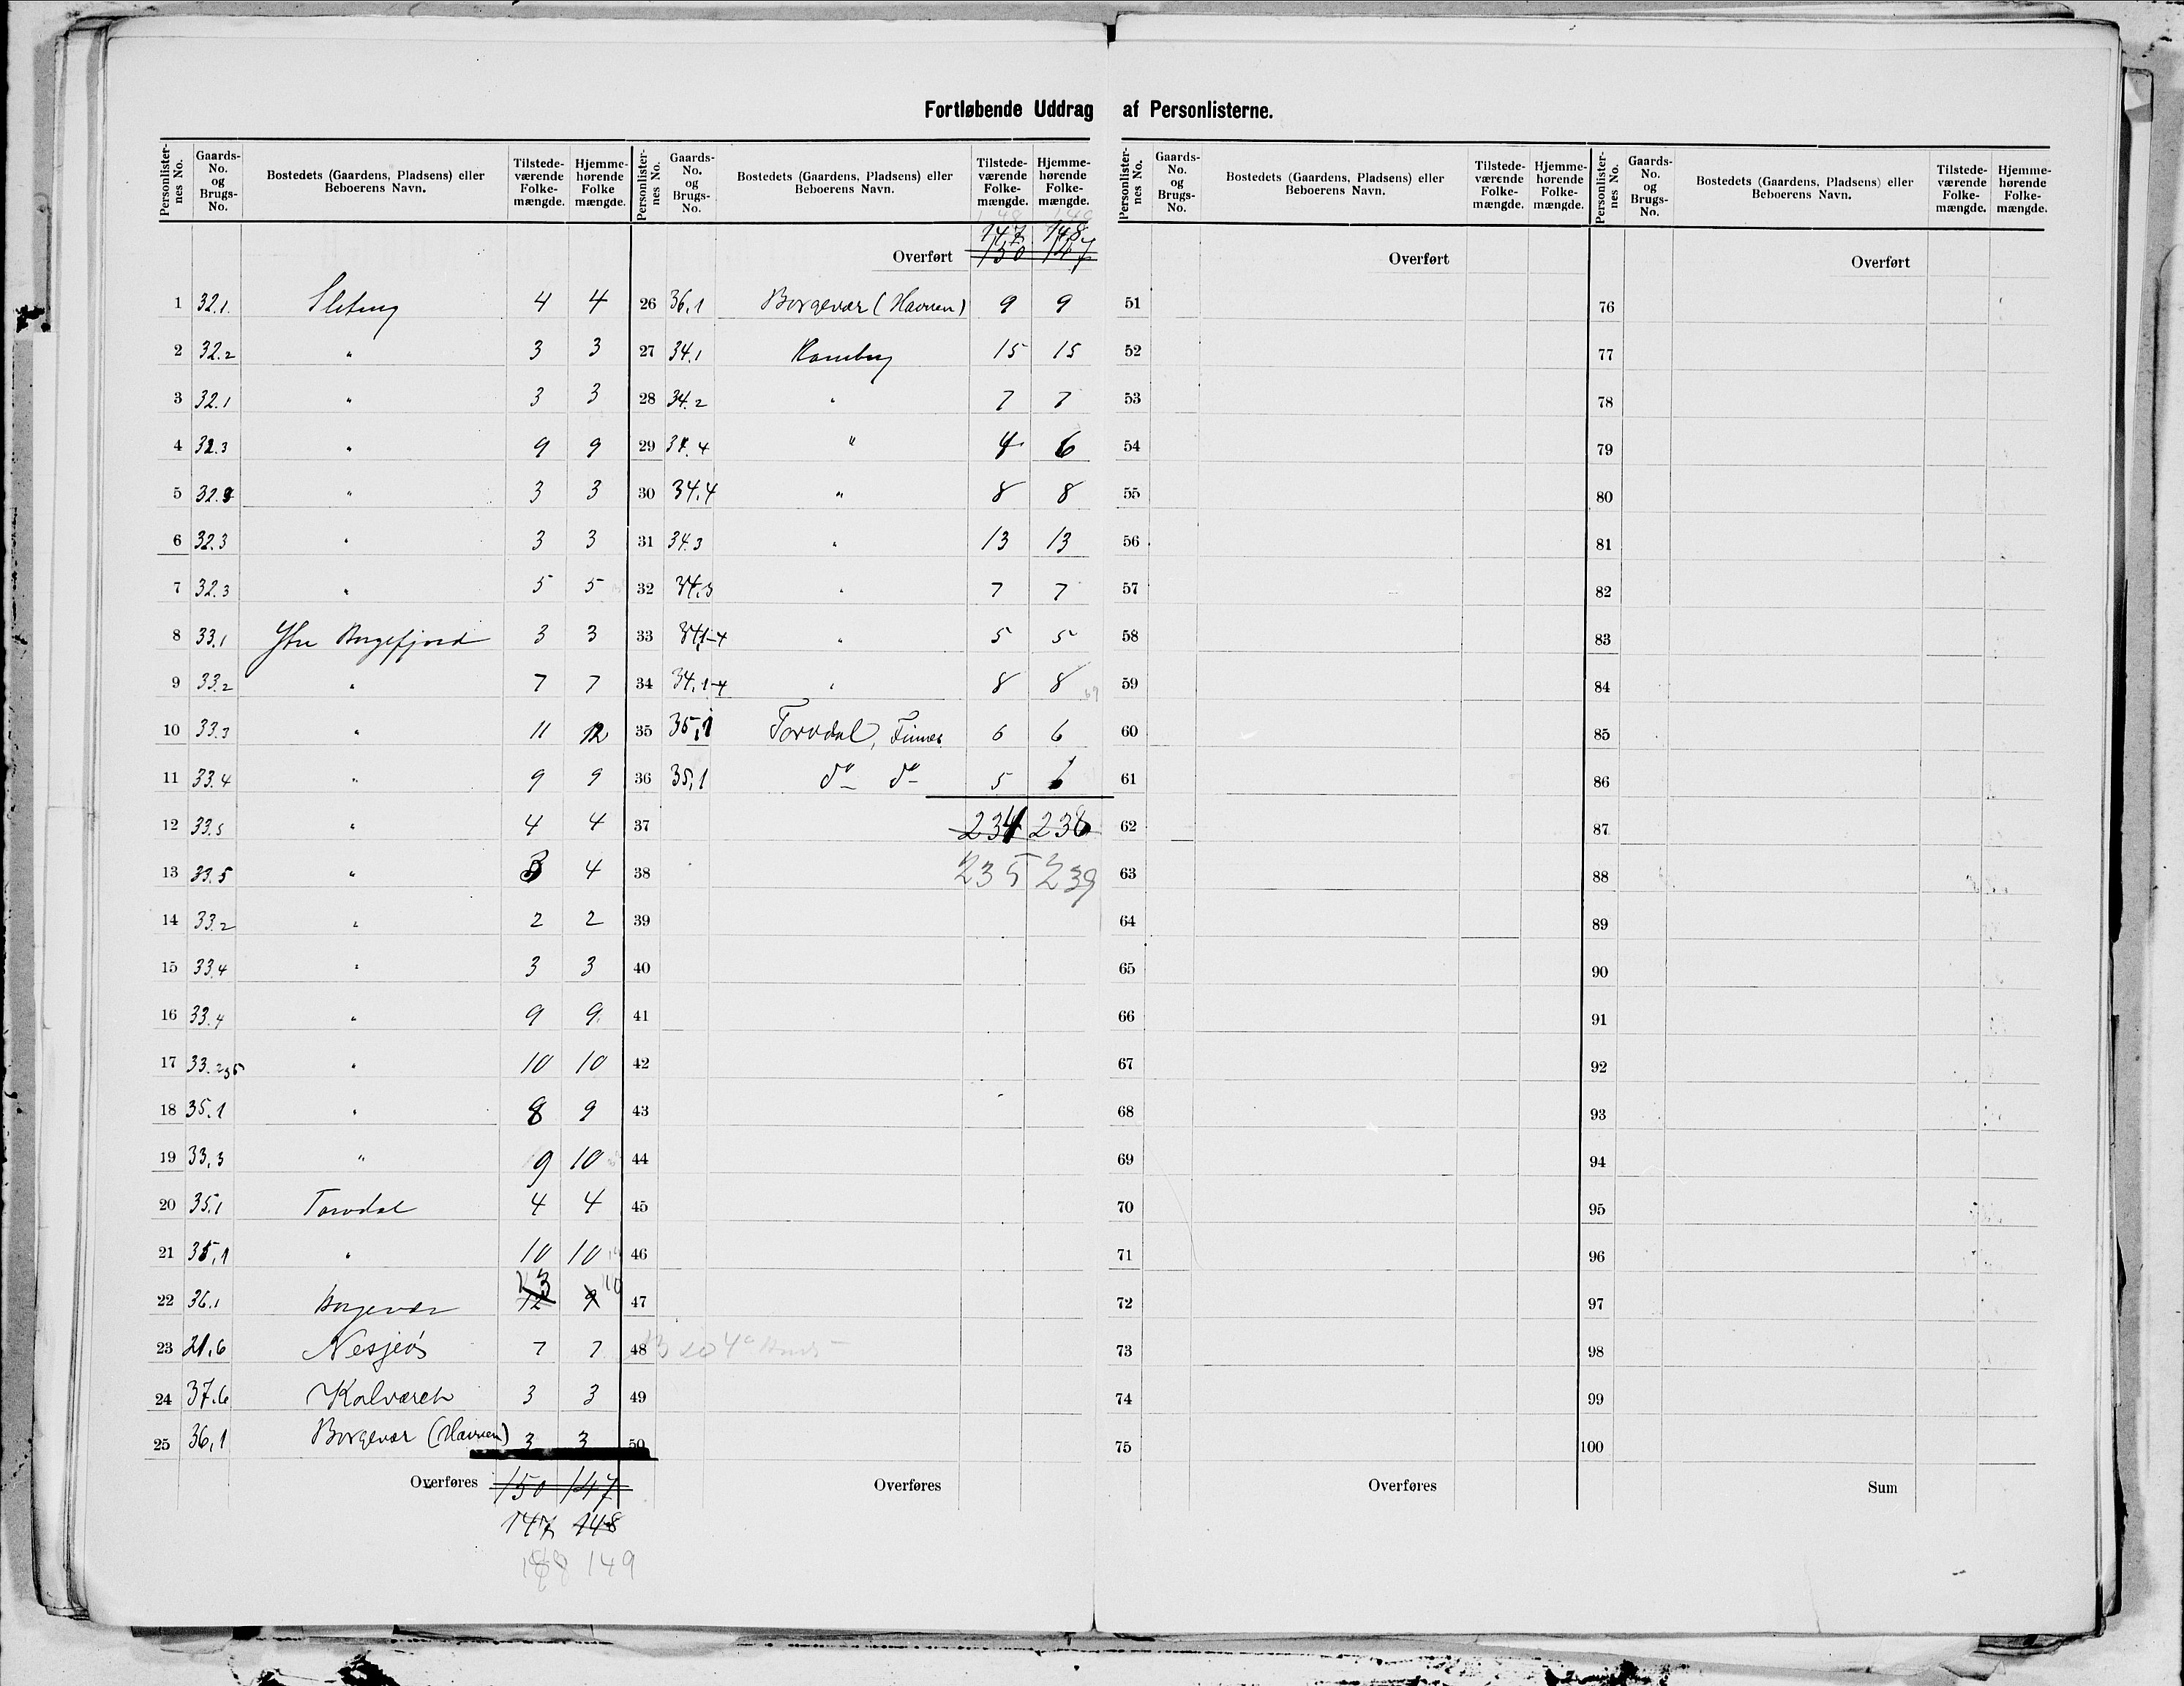 Fortløbende Uddrag af Personlisterne.
Personlister-nes No. Gaards-No. og Brugs-No. Bostedets (Gaardens, Pladsens) eller Beboerens Navn. Tilstede-værende Folke-mængde. Hjemme-hørende Folke mængde.
1 32.1. 4 4
2 32.2 " 3 3
3 32.1 " 3 3
4 32.3 " 9 9
5 32. " 3 3
6 32.3 " 3 3
7 32.3 " 5 5
8 33.1 Ytre Borgefjord 3 3
9 33.2 " 7 7
10 33.3 " 11 12
11 33.4 " 9 9
12 33.5 " 4 4
13 33.5 " 3 4
14 33.2 " 2 2
15 33.4 " 3 3
16 33.4 " 9 9
17 33. " 10 10
18 35.1 " 8 9
19 33.3 " 9 10
20 35.1 Torvdal 4 4
21 35.1 " 10 10
22 36.1 Borgevær 12 13 9 10
23 21.6 Nesjeøs 7 7
24 37.6 Kalværet 3 3
25 36.1 Borgevær (Havnen) 3 3
Overføres 150 147
147 148
148 149
Personlister-nes No. Gaards-No. og Brugs-No. Bostedets (Gaardens, Pladsens) eller Beboerens Navn. Tilstede-værende Folke-mængde. Hjemme-hørende Folke-mængde.
148 149
147 148
Overført 150 147
26 36.1 Borgevær (Havnen) 9 9
27 34.1 Ramberg 15 15
28 34.2 " 7 7
29 34.4 " 4 6
30 34.4 " 8 8
31 34.3 " 13 13
32 34.3 " 7 7
33 34.1-4 " 5 5
34 34.1-4 " 8 8
35 35.1 Torvdal, Finnes 6 6
36 35.1 do do 5 6
37 234 238
38 235 239
39
40
41
42
43
44
45
46
47
48
49
50
Overføres
Personlister-nes No. Gaards-No. og Brugs-No. Bostedets (Gaardens, Pladsens) eller Beboerens Navn. Tilstede-værende Folke-mængde. Hjemme-hørende Folke-mængde.
Overført
51
52
53
54
55
56
57
58
59
60
61
62
63
64
65
66
67
68
69
70
71
72
73
74
75
Overføres
Personlister-nes No. Gaards-No. og Brugs-No. Bostedets (Gaardens, Pladsens) eller Beboerens Navn. Tilstede-værende Folke-mængde. Hjemme-hørende Folke-mængde.
Overført
76
77
78
79
80
81
82
83
84
85
86
87
88
89
90
91
92
93
94
95
96
97
98
99
100
Sum